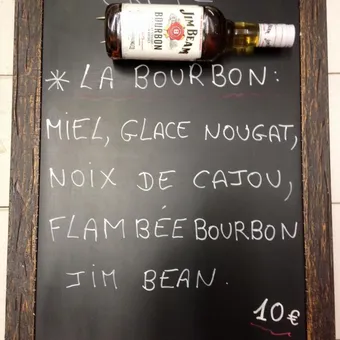 JIM BEAM
BOURBON
* LA BOURBON:
MIEL, GLACE NOUGAT,
NOIX DE CAJOU,
FLAMBÉE BOURBON
JIM BEAN.
10€